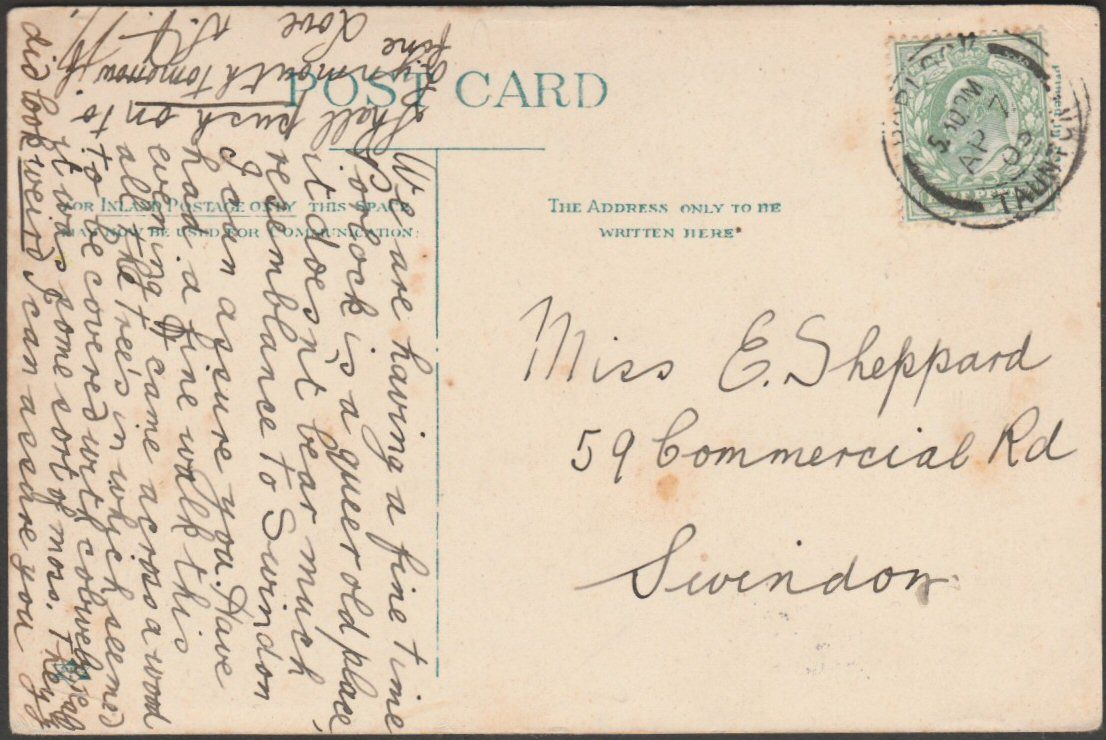 POST CARD
FOR INLAND POSTAGE ONLY THIS SPACE
MAY NOW BE USED FOR COMMUNICATION.
THE ADDRESS ONLY TO BE
WRITTEN HERE
We are having a fine time
Porlock is a queer old place,
it doesn't bear much
resemblance to Swindon
I can assure you. Have
had a fine walk this
evening & came across a wood
all the trees in which seemed
to be covered with cobwebs,
it was some sort of moss. They
did look weird I can assure you
Shall push on to
Lynmouth tomorrow if
fine Love
Miss E. Sheppard
59 Commercial Rd
Swindon
PORLOCK
5.40PM
AP 7
TAUNTON